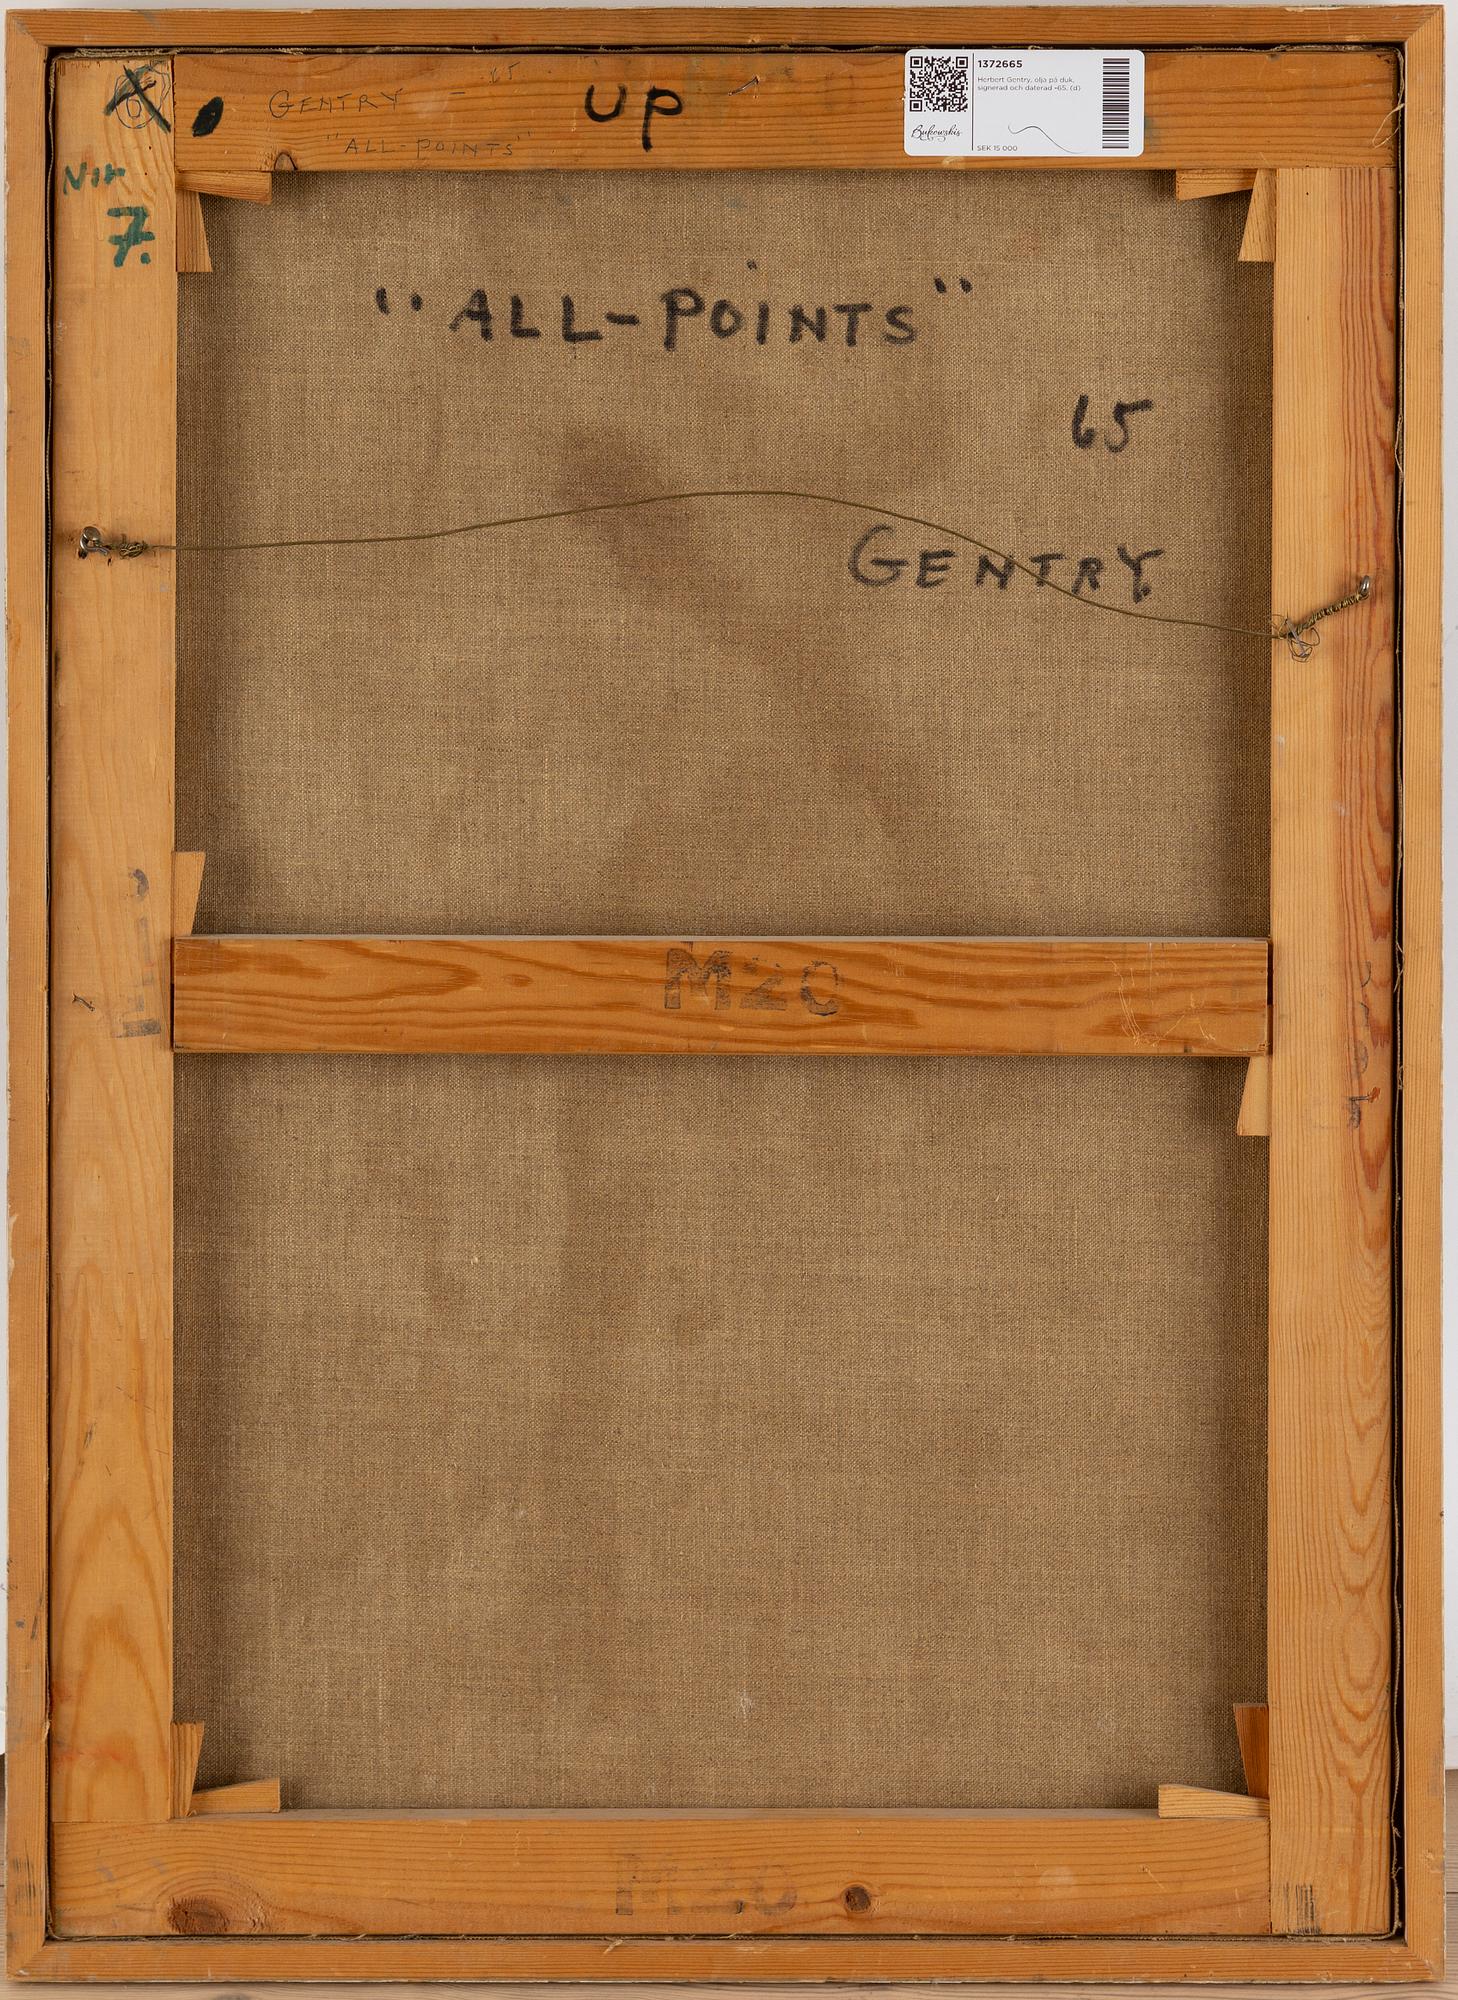 GENTRY - 65
"ALL-POINTS"
UP
1372665
Herbert Gentry, olja på duk,
signerad och daterad -65. (d)
Bukowskis
SEK 15 000
7.
"ALL-POINTS"
65
GENTRY
M20
M20